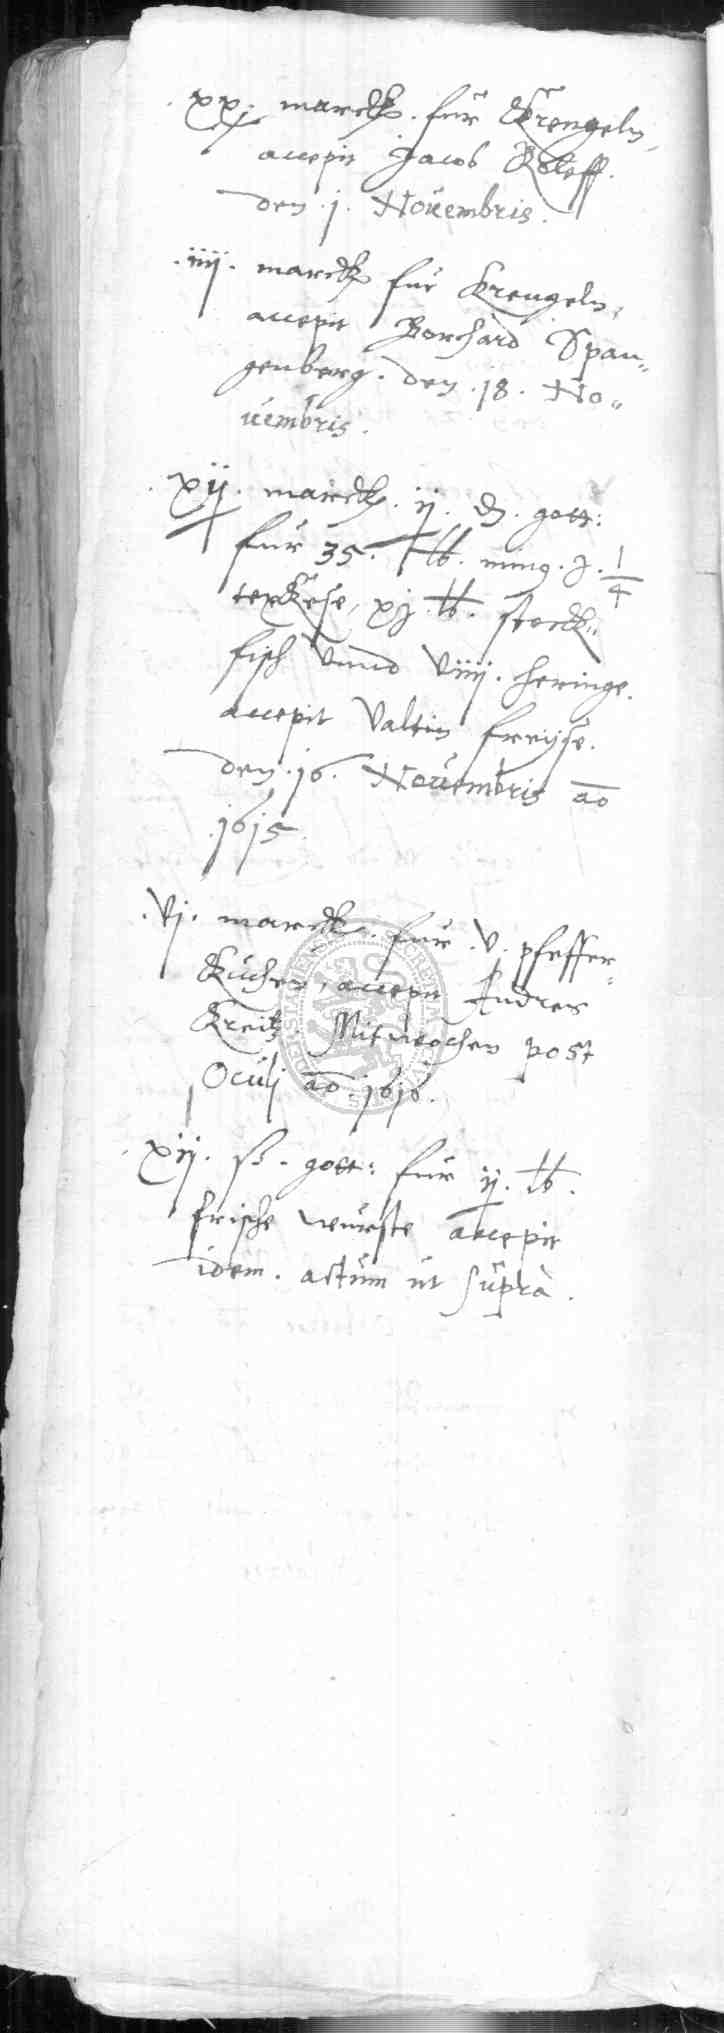 .xx. marck. für Krengeln,
accepit Jacob Roleff.
den .j. Nouembris.
.iiij. marck für Krengeln,
accepit Borchard Span„
genberg. den .18. No„
uembris.
.xij. marck. ij. ₰. gott:
für 35. ℔. ming. z. 1/4
terkese, xj. ℔. stock„
fisch Vnnd Viiij. heringe.
accepit Valtin freijse.
den .16. Nouembris ao
.1615.
.Vj. marck. für .V. pfeffer„
Kuchen, accepit Andres
Kreitz. Mitwochen post
Oculj ao .1616.
.xij. ß. gott: für ij. ℔.
frische würste accepit
idem. actum ut supra.